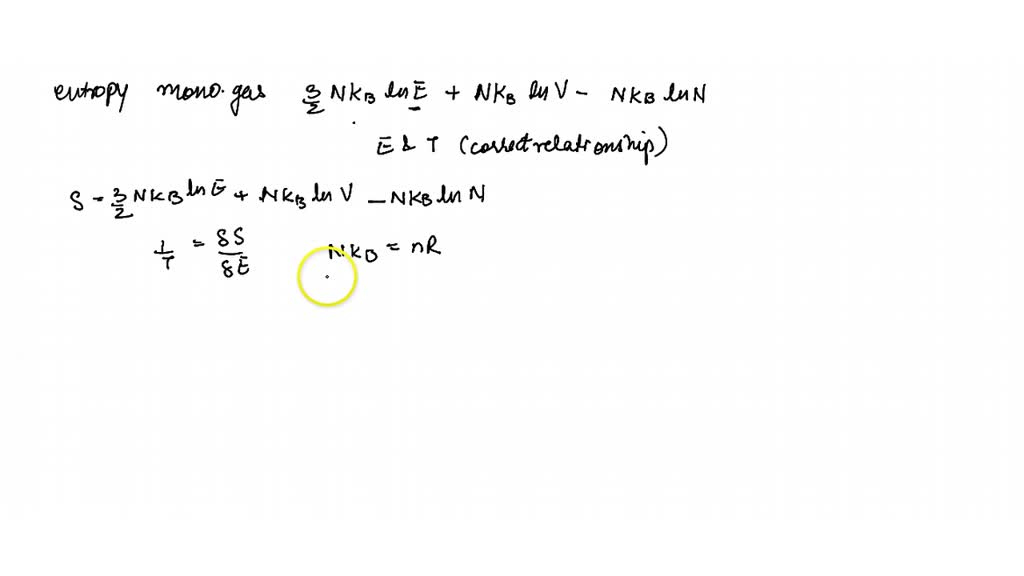 entropy mono.gas 3/2 NKB ln E + NKB ln V - NKB ln N
E & T (correct relationship)
S = 3/2 NKB ln E + NKB ln V - NKB ln N
1/T = δS/δE NKB = nR